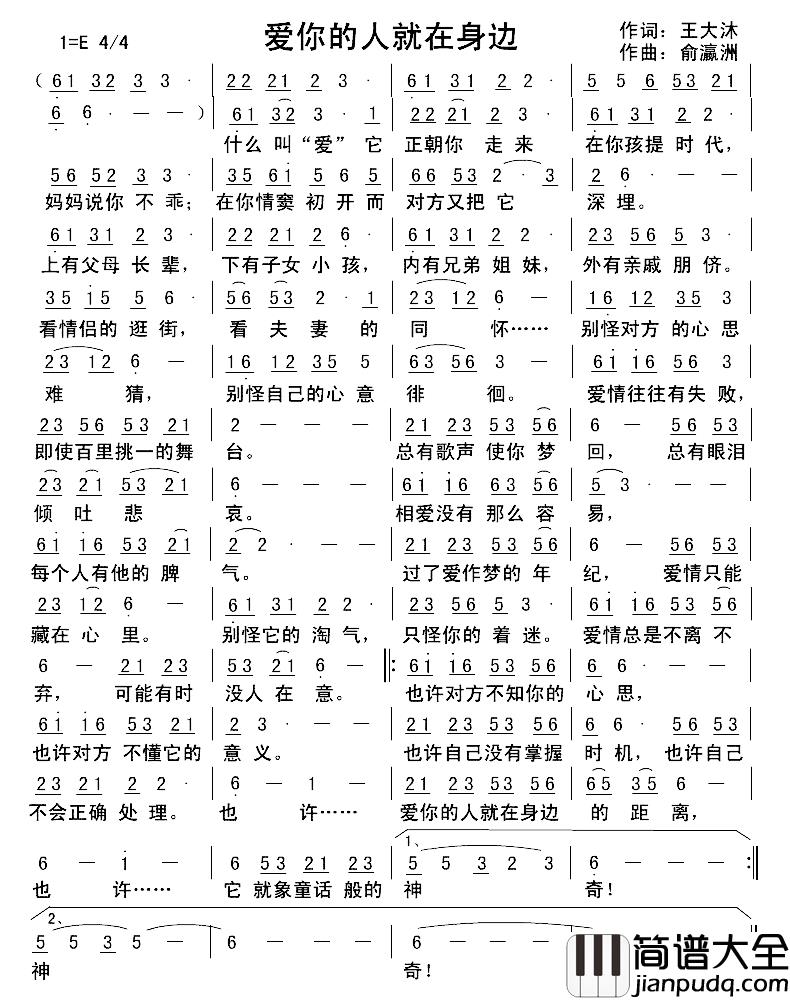 1=E 4/4
爱你的人就在身边
作词：王大沐
作曲：俞瀛洲
（ 61 32 3 3 · | 22 21 2 3 · | 61 31 2 3 · | 5 5 6 53 21 |
6 6 · — — ） | 61 32 3 · 1 | 22 21 2 3 · | 61 31 2 2 · |
什么 叫“爱”它 正朝你 走 来 在你孩提 时 代，
56 52 3 3 · | 35 61 56 5 | 66 53 2 · 3 | 2 6 · — |
妈妈说你 不 乖； 在你情窦 初 开而 对方又把 它 深 埋。
61 31 2 3 · | 22 21 2 6 · | 61 31 2 2 · | 23 56 53 2 · |
上有父母 长 辈， 下有子女 小 孩， 内有兄弟 姐 妹， 外有亲戚 朋 侪。
35 15 5 6 · | 56 53 2 · 1 | 23 12 6 — | 16 12 35 3 |
看情侣的 逛 街， 看 夫 妻 的 同 怀…… 别怪对方 的心 思
23 12 6 — | 16 12 35 5 | 63 56 3 — | 61 16 56 3 |
难 猜， 别怪自己 的心 意 徘 徊。 爱情往往 有失 败，
23 56 53 21 | 2 — — — | 21 23 53 56 | 6 — 56 53 |
即使百里 挑一的舞 台。 总有歌声 使你 梦 回， 总有眼泪
23 21 53 21 | 6 — — — | 61 16 63 56 | 5 3 · — |
倾 吐 悲 哀。 相爱没有 那么 容 易，
61 16 53 21 | 2 2 · — — | 21 23 53 56 | 6 — 56 53 |
每个人有 他的 脾 气。 过了爱作 梦的 年 纪， 爱情只能
23 12 6 — | 61 31 2 2 · | 23 56 5 3 · | 23 53 53 56 |
藏在 心 里。 别怪它的 淘 气， 只怪你的 着 迷。 爱情总是 不离 不
6 — 21 23 | 53 21 6 — ‖: 61 16 53 56 | 6 6 · — |
弃， 可能有时 没人 在 意。 也许对方 不知你的 心 思，
61 16 53 21 | 2 3 · — | 21 23 53 56 | 6 6 · 56 53 |
也许对方 不懂它的 意 义。 也许自己 没有掌握 时 机，也许自己
23 21 2 2 · | 6 — 1 — | 21 23 53 56 | 65 35 6 — |
不会正确 处 理。 也 许…… 爱你的人 就在身边 的 距 离，
1、
6 — 1 — | 6 53 21 23 | 5 5 3 2 3 | 6 — — — :‖
也 许…… 它 就象童话 般的 神 奇！
2、
5 5 3 2 3 5 | 6 — — — | 6 — — — | 6
神 奇！
简谱大全
jianpudq.com